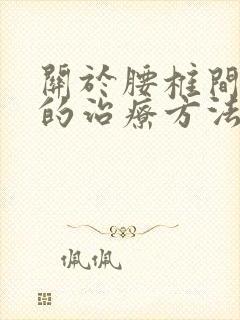 關於腰椎間
的治療方法
佩佩